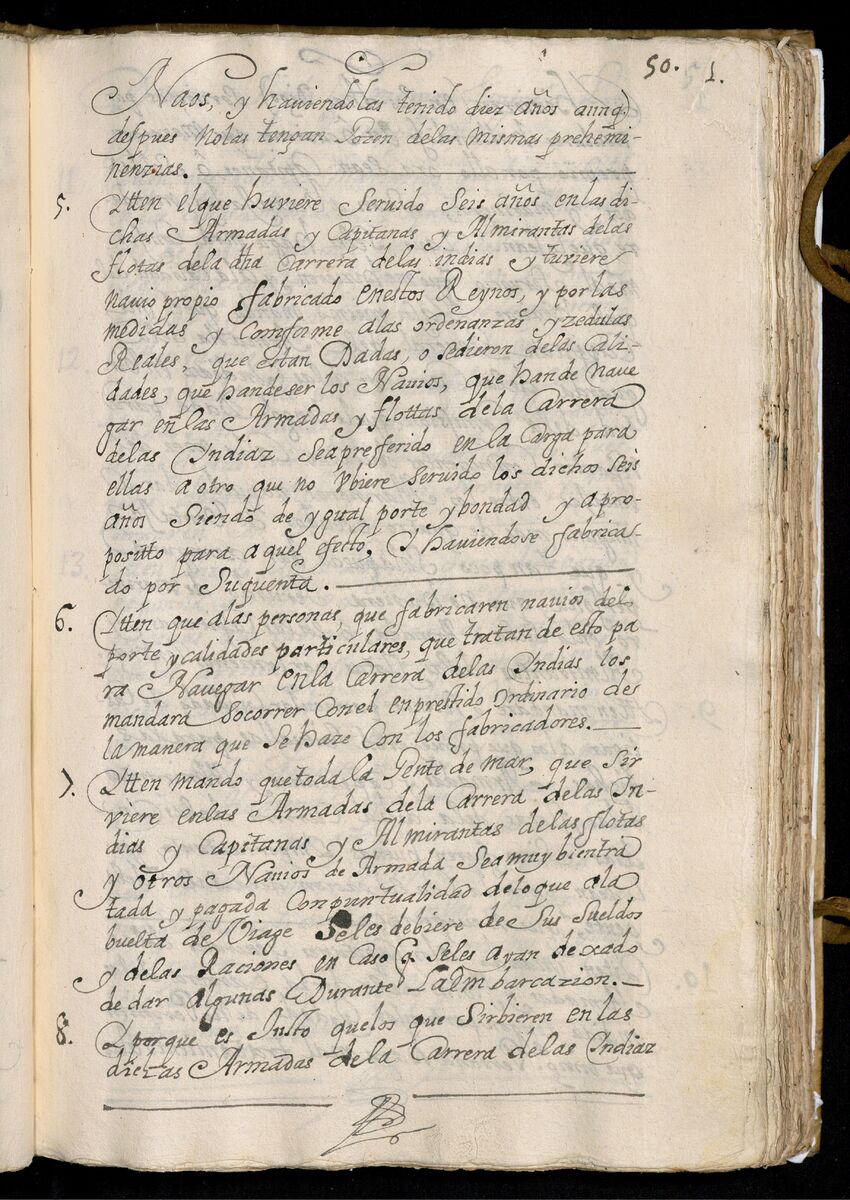 50. 1.
Naos, y haviendolas tenido diez años aunq.
despues nolas tengan Gozen delas mismas prehemi-
nenzias.
5. Itten elque huviere Servido Seis años en las di-
chas Armadas y Capitanas y Almirantas delas
flotas dela dha Carrera delas indias y tuviere
navio propio fabricado enestos Reynos, y por las
medidas y Comforme alas ordenanzas y zedulas
Reales, que estan Dadas, o sedieron delas Cali-
dades, que handeser los Navios, que han de nave
gar en las Armadas y flottas dela Carrera
delas Indiaz Sea presferido en la Carga para
ellas a otro que no Vbiere servido los dichos seis
años Siendo de ygual porte y bondad y apro-
positto para aquel efecto, Y haviendose fabrica-
do por Suquenta.
6. Itten que alas personas, que fabricaren navios del
porte y calidades particulares, que tratan de esto pa
ra Navegar en la Carrera delas Indias los
mandara Socorrer Con el enprestido Ordinario des
la manera que Se haze Con los fabricadores.
7. Itten mando que toda la Gente de mar, que Sir
viere en las Armadas dela Carrera delas In-
dias y Capitanas y Almirantas delas flotas
y otros Navios de Armada Sea muy bien tra
tada y pagada Con puntualidad delo que ala
buelta de Viage Seles debiere de Sus Sueldos
y delas Raciones en Caso q. Seles ayan dexado
de dar algunas Durante La Embarcazion.
8. Y porque es Justo quelos que Sirbieren en las
dichas Armadas dela Carrera delas Indiaz